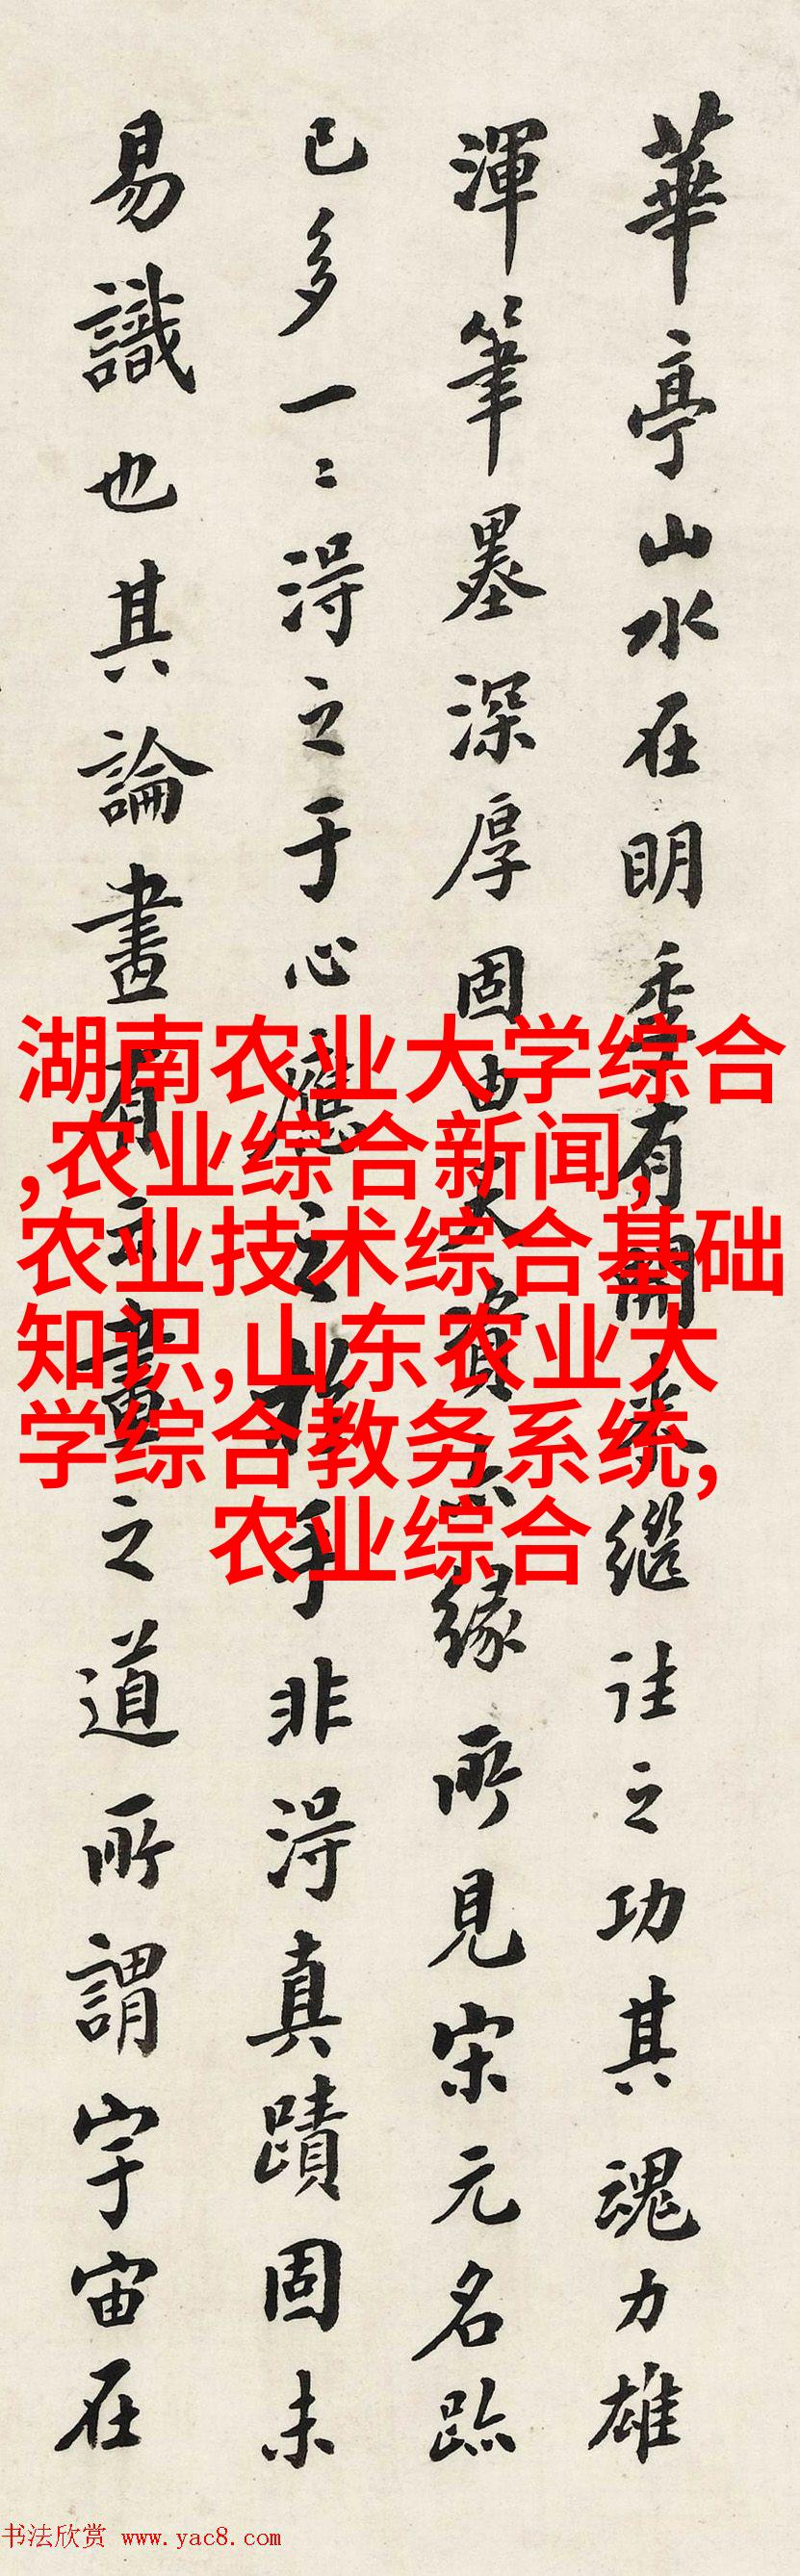 華亭山水在明季有開來繼往之功其魂力雄
渾筆墨深厚固由天資亦緣所見宋元名跡
已多一二得之于心應之于手非得真蹟固未
易識也其論畫有云畫之道所謂宇宙在
湖南农业大学综合
,农业综合新闻,
农业技术综合基础
知识,山东农业大
学综合教务系统,
农业综合
书法欣赏 www.yac8.com